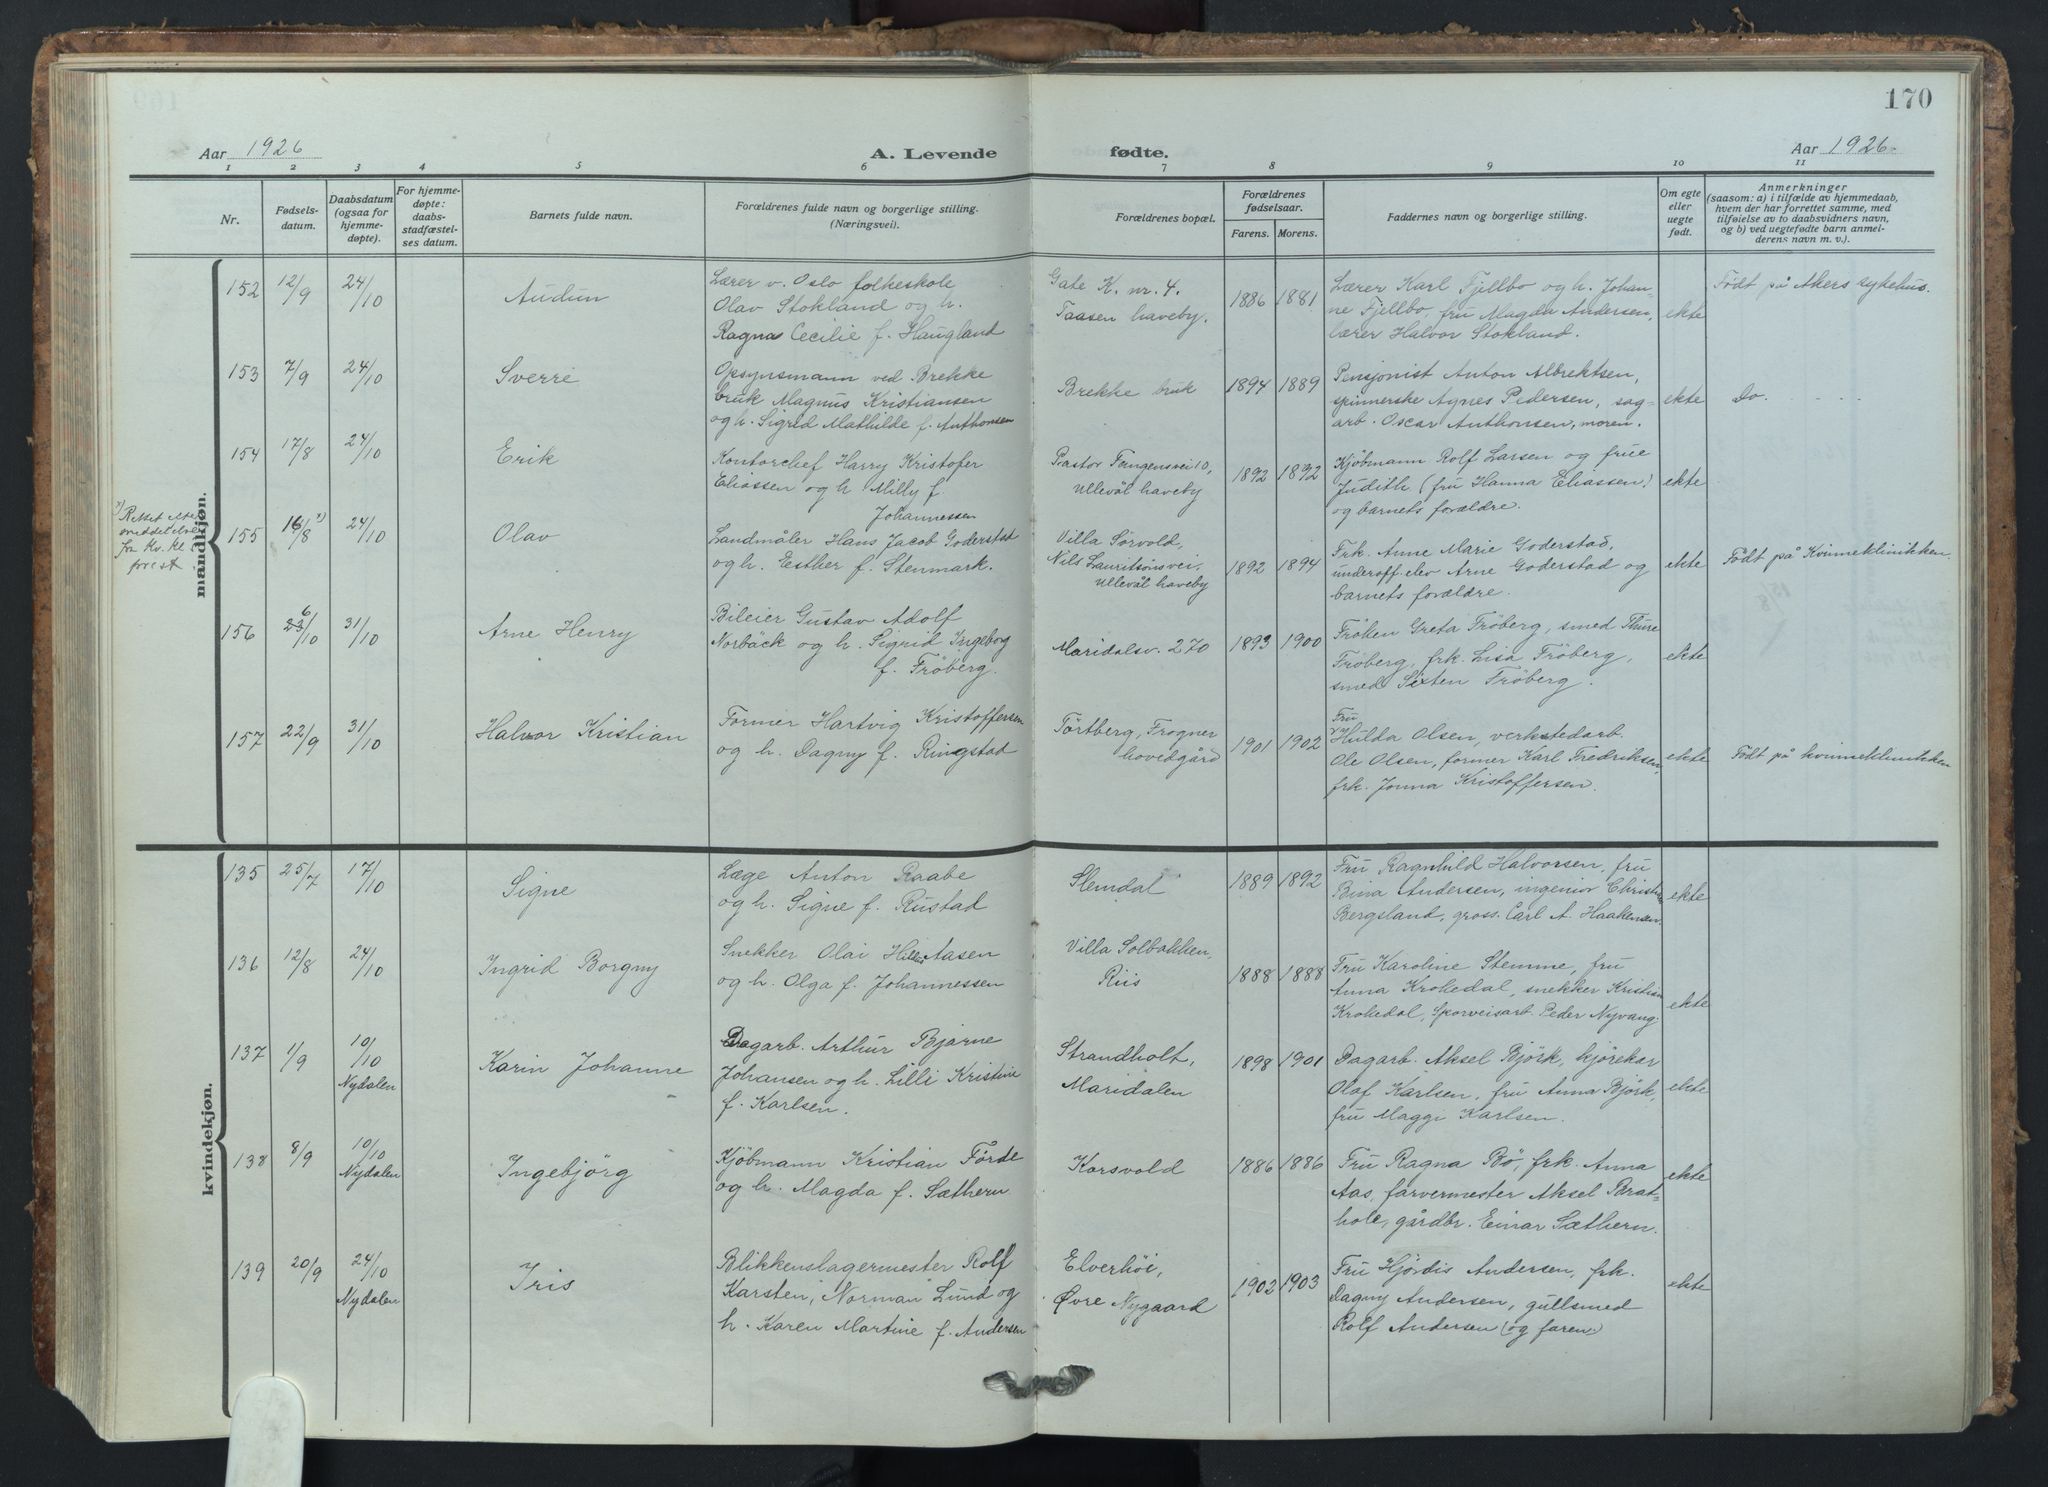 170
Aar 1926
A. Levende fødte.
Aar 1926.
1 2 3 4 5 6 7 8 9 10 11
Nr.
Fødsels-
datum.
Daabsdatum
(ogsaa for
hjemme-
døpte).
For hjemme-
døpte:
daabs-
stadfæstel-
ses datum.
Barnets fulde navn.
Forældrenes fulde navn og borgerlige stilling.
(Næringsvei).
Forældrenes bopæl.
Forældrenes
fødselsaar.
Farens. Morens.
Faddernes navn og borgerlige stilling.
Om egte
eller
uegte
født.
Anmerkninger
(saasom: a) i tilfælde av hjemmedaab,
hvem der har forrettet samme, med
tilføielse av to daabsvidners navn,
og b) ved uegtefødte barn anmel-
derens navn m. v.).
mandkjøn.
152 12/9 24/10
Audun
Lærer v. Oslo folkeskole
Olav Stokland og h.
Ragna Cecilie f. Haugland
Gate K. nr. 4.
Taasen haveby.
1886 1881
Lærer Karl Fjellbo og h. Johan-
ne Fjellbo, fru Magda Andersen,
lærer Halvor Stokland.
ekte
Født på Akers sykehus.
153 7/9 24/10
Sverre
Opsynsmann ved Brekke
bruk Magnus Kristiansen
og h. Sigrid Mathilde f. Anthonsen
Brekke bruk
1894 1889
Pensjonist Anton Albrektsen,
spinnerske Agnes Pedersen, sag-
arb. Oscar Anthonsen, moren.
ekte
Do.
154 17/8 24/10
Erik
Kontorchef Harry Kristofer
Eliassen og h. Milly f.
Johannessen
Pastor Fangensvei 10,
Ullevål haveby
1892 1892
Kjøbmann Rolf Larsen og frue
Judith (fru Hanna Eliassen)
og barnets forældre.
ekte
x) Rettet efter
meddelelse
fra Kv. kl.
155 16/8 x) 24/10
Olav
Landmåler Hans Jacob Goderstad
og h. Esther f. Stenmark.
Villa Sørvold,
Nils Lauritsønsvei,
Ullevål haveby
1892 1894
Frk. Anne Marie Goderstad,
underoff. elev Arne Goderstad og
barnets forældre.
ekte
Født på Kvinneklinikken.
156 6 23/10 31/10
Arne Henry
Bileier Gustav Adolf
Norbäck og h. Sigrid Ingeborg
f. Fröberg.
Maridalsv. 270
1893 1900
Frøken Greta Fröberg, smed Thure
Fröberg, frk. Lisa Fröberg,
smed Sixten Fröberg.
ekte
157 22/9 31/10
Halvor Kristian
Former Hartvig Kristoffersen
og h. Dagny f. Ringstad
Tørtberg, Frogner
hovedgård
1901 1902
Fru
Hulda Olsen, verkstedarb.
Ole Olsen, former Karl Fredriksen,
frk. Jonna Kristoffersen.
ekte
Født på kvinneklinikken
kvindekjøn.
135 25/7 17/10
Signe
Læge Anton Raabe
og h. Signe f. Rustad
Slemdal
1889 1892
Fru Ragnhild Halvorsen, fru
Bina Andersen, ingeniør Christian
Bergsland, gross. Carl A. Haakensen.
ekte
136 12/8 24/10
Ingrid Borgny
Snekker Olai Aasen
og h. Olga f. Johannessen
Villa Solbakken,
Riis
1888 1888
Fru Karoline Stemme, fru
Anna Krokedal, snekker Kristian
Krokedal, sporveisarb. Peder Nyvang.
ekte
137 1/9 10/10
Nydalen
Karin Johanne
Dagarb. Arthur Bjarne
Johansen og h. Lilli Kristine
f. Karlsen.
Strandholt,
Maridalen
1898 1901
Dagarb. Aksel Bjørk, kjørekar
Olaf Karlsen, fru Anna Bjørk,
fru Maggi Karlsen.
ekte
138 8/9 10/10
Nydalen
Ingebjørg
Kjøbmann Kristian Førde
og h. Magda f. Sæthern.
Korsvold
1886 1886
Fru Ragna Bø, frk. Anna
Aas, farvermester Aksel Brat-
hole, gårdbr. Einar Sæthern.
ekte
139 20/9 24/10
Nydalen
Iris
Blikkenslagermester Rolf
Karsten, Norman Lund og
h. Karen Martine f. Andersen
Elverhøi,
Øvre Nygaard
1902 1903
Fru Hjørdis Andersen, frk.
Dagny Andersen, gullsmed
Rolf Andersen (og faren)
ekte